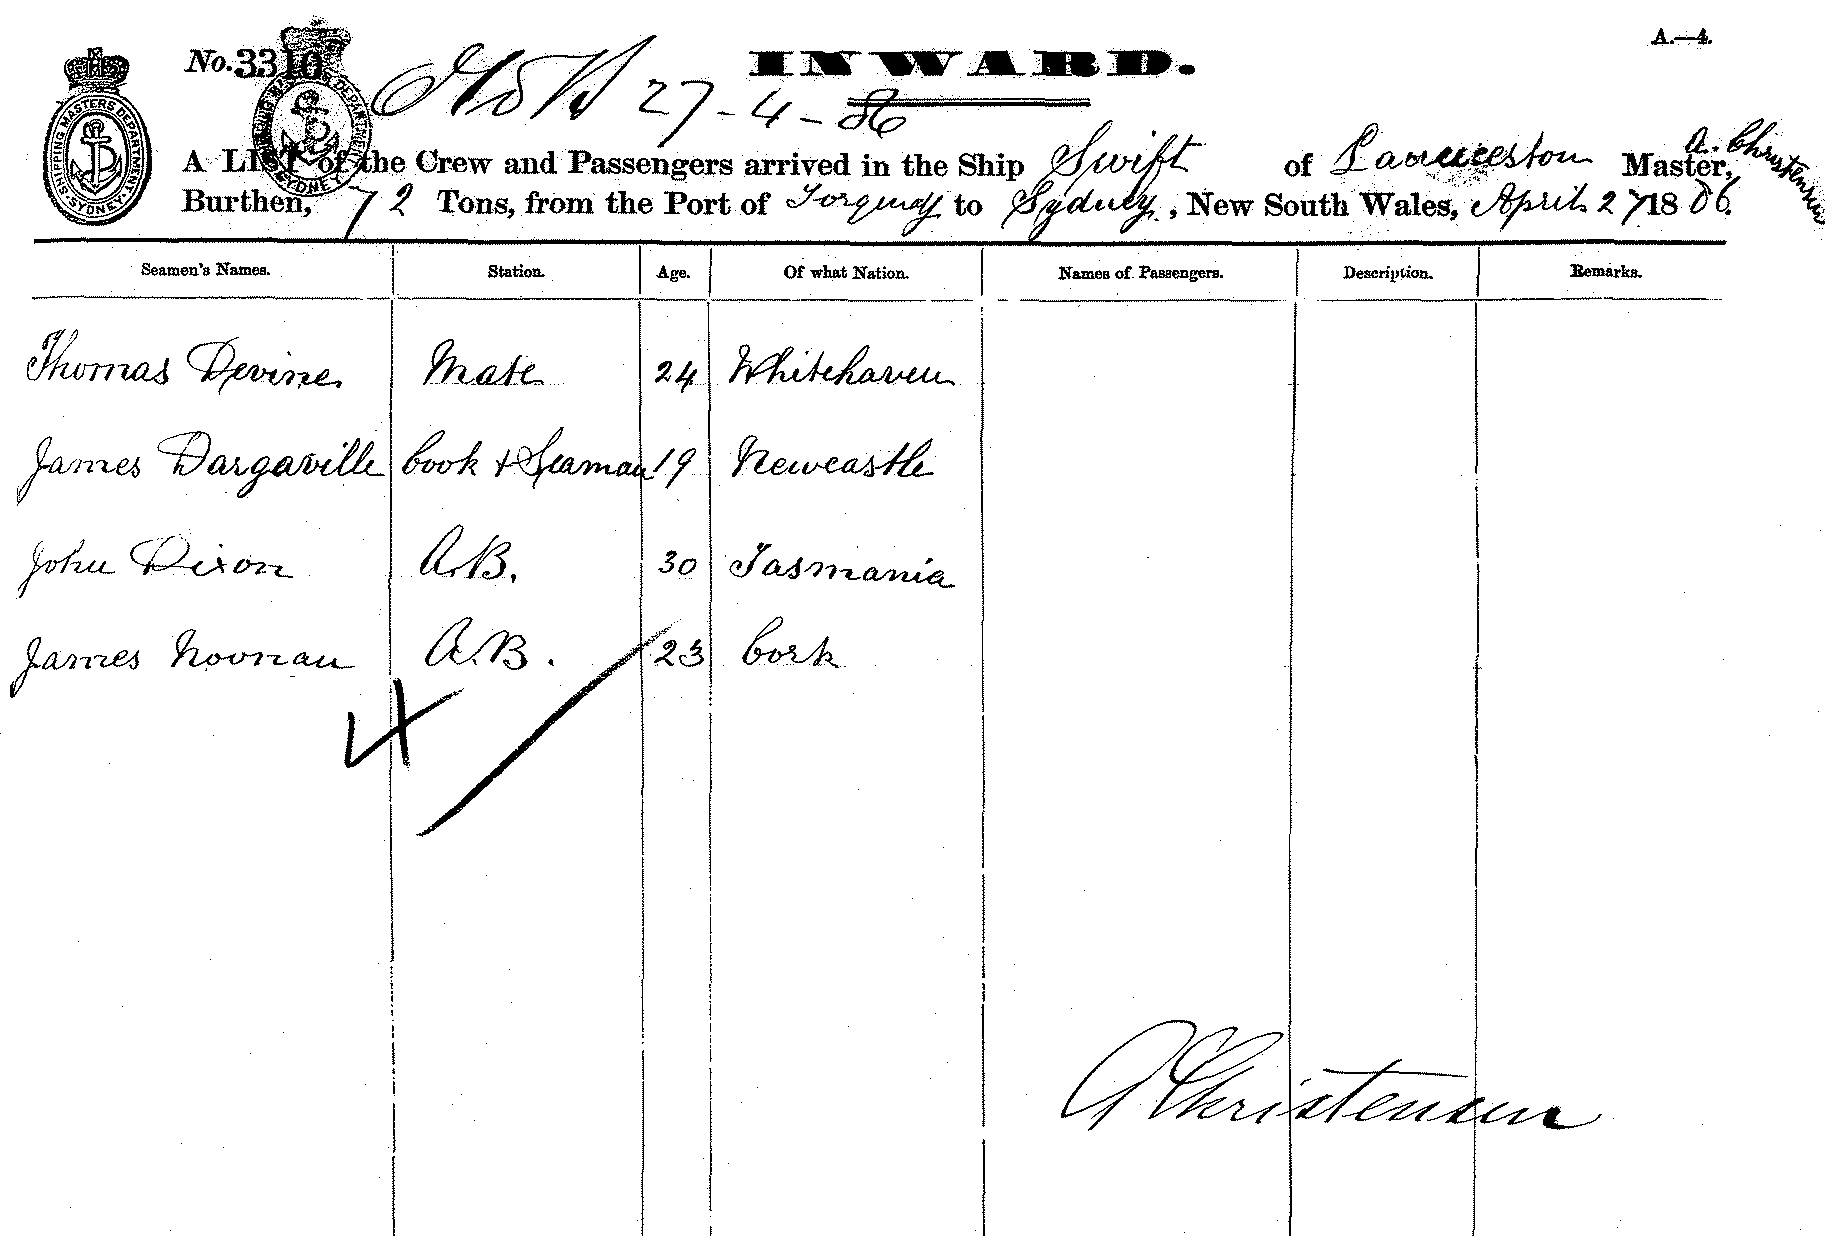 A.—4.
No. 3310
INWARD.
27-4-86
A LIST of the Crew and Passengers arrived in the Ship Swift of Launceston Master, A. Christensen
Burthen, 72 Tons, from the Port of to Sydney, New South Wales, April 27 1886.
SHIPPING MASTERS DEPARTMENT SYDNEY
Seamen's Names. Station. Age. Of what Nation. Names of Passengers. Description. Remarks.
Thomas Devine Mate 24 Whitehaven
James Dargaville Cook & Seaman 19 Newcastle
John Dixon A.B. 30 Tasmania
James Noonan A.B. 23 Cork
4
A Christensen